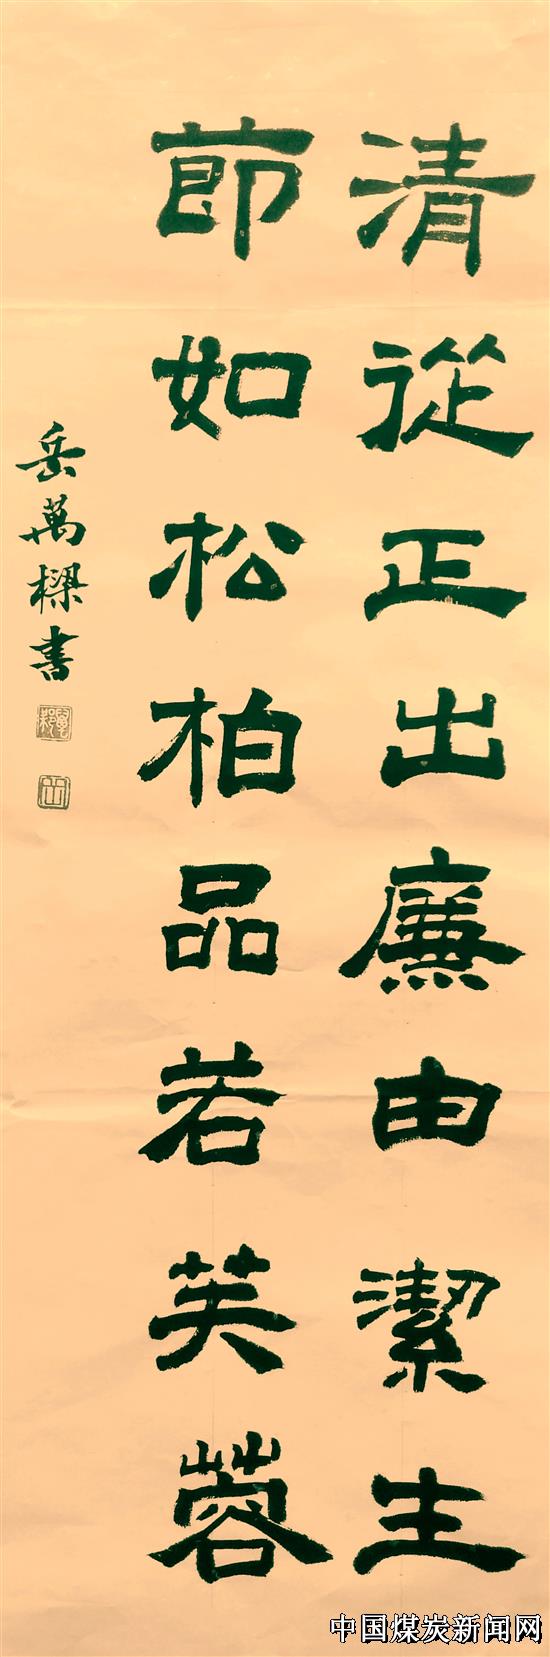 清從正出廉由潔生
節如松柏品若芙蓉
岳萬樑書
中国煤炭新闻网